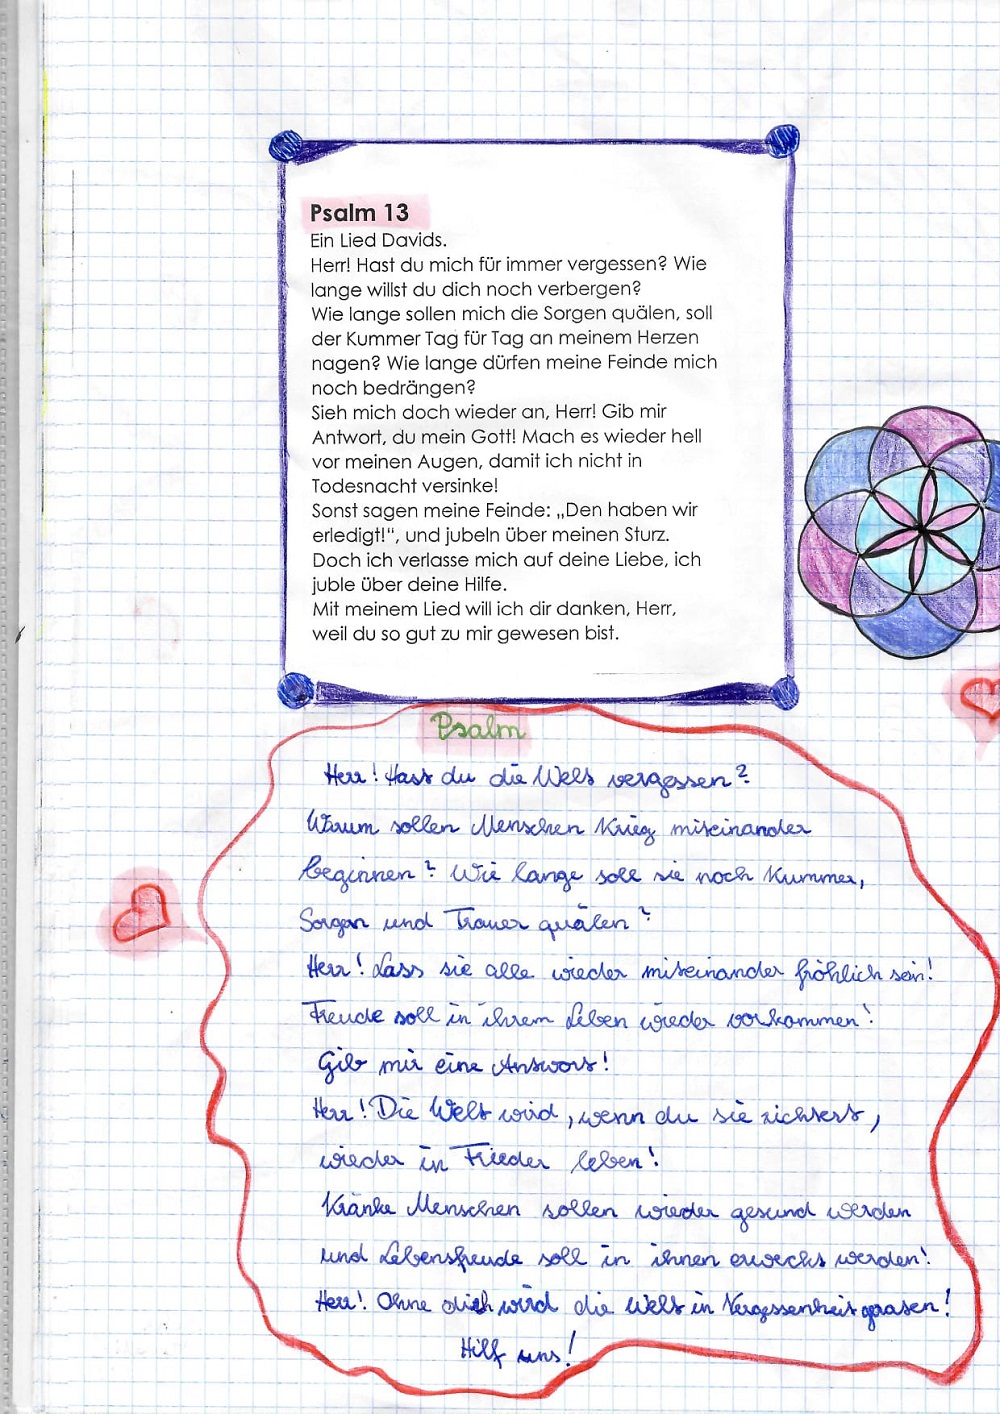 Psalm 13
Ein Lied Davids.
Herr! Hast du mich für immer vergessen? Wie
lange willst du dich noch verbergen?
Wie lange sollen mich die Sorgen quälen, soll
der Kummer Tag für Tag an meinem Herzen
nagen? Wie lange dürfen meine Feinde mich
noch bedrängen?
Sieh mich doch wieder an, Herr! Gib mir
Antwort, du mein Gott! Mach es wieder hell
vor meinen Augen, damit ich nicht in
Todesnacht versinke!
Sonst sagen meine Feinde: „Den haben wir
erledigt!“, und jubeln über meinen Sturz.
Doch ich verlasse mich auf deine Liebe, ich
juble über deine Hilfe.
Mit meinem Lied will ich dir danken, Herr,
weil du so gut zu mir gewesen bist.
Psalm
Herr! Hast du die Welt vergessen?
Warum sollen Menschen Krieg miteinander
beginnen? Wie lange soll sie noch Kummer,
Sorgen und Trauer quälen?
Herr! Lass sie alle wieder miteinander fröhlich sein!
Freude soll in ihrem Leben wieder vorkommen!
Gib mir eine Antwort!
Herr! Die Welt wird, wenn du sie richtest,
wieder in Frieden leben!
Kranke Menschen sollen wieder gesund werden
und Lebensfreude soll in ihnen erweckt werden!
Herr! Ohne dich wird die Welt in Vergessenheit geraten!
Hilf uns!